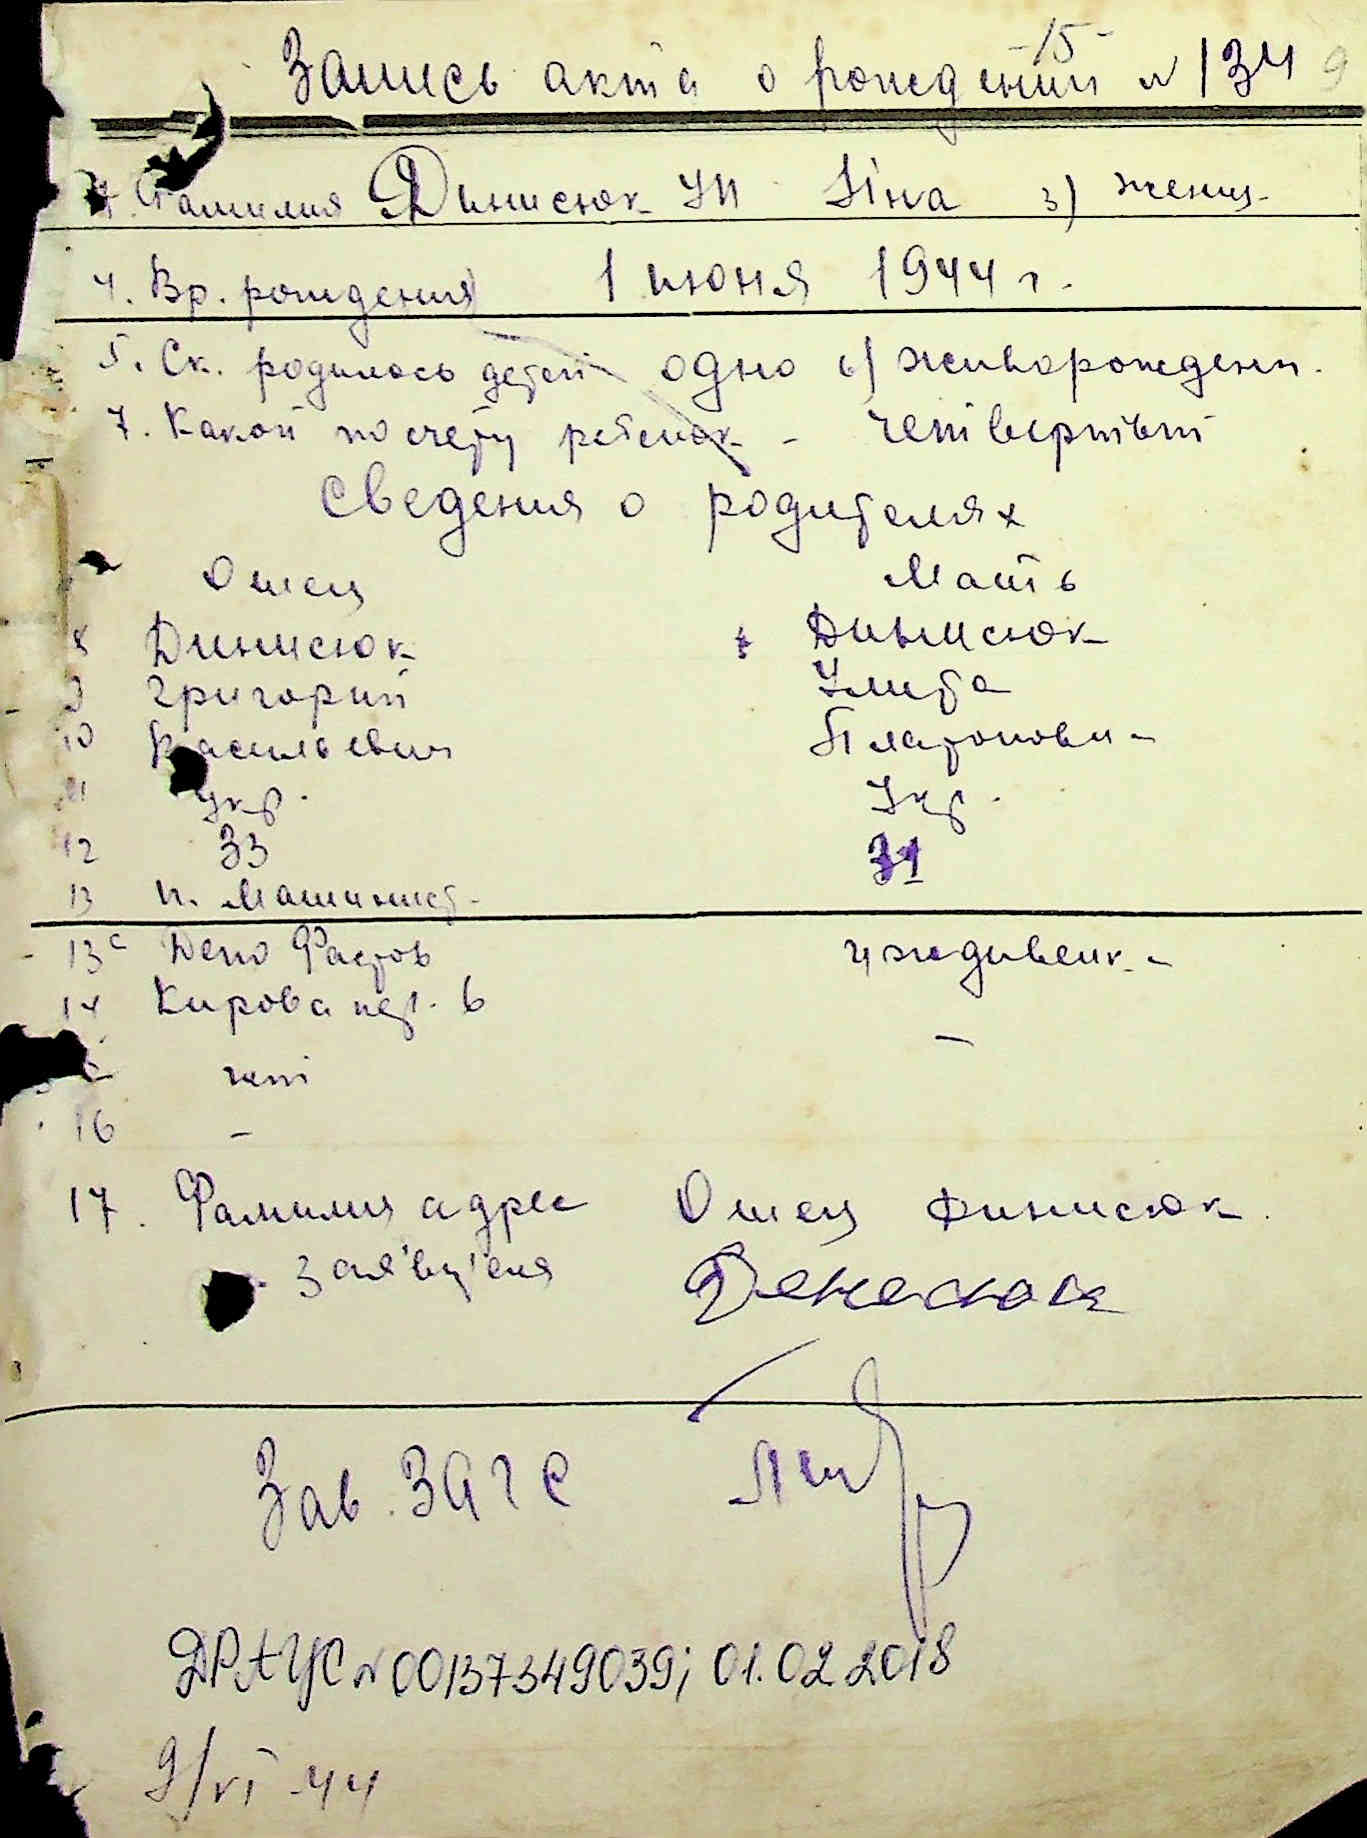 -15-
Запись акта о рождении № 134 9
1. Фамилия Динисюк Имя Ніна 3) женщ.
4. Вр. рождения 1 июня 1944 г.
5. Ск. родилось детей одно 6) живорожденн.
7. Какой по счету ребенок - четвертый
Сведения о родителях
Отец Мать
8 Динисюк Динисюк
9 Григорий Улита
10 Васильевич Платоновн-
11 Укр. Укр.
12 33 31
13 п. Машинист-
13а Депо Фастов иждивенк.-
14 Кирова пер. 6 -
нет
16 -
17. Фамилия адрес Отец Динисюк.
заявителя Денесюк
Зав. ЗАГС
ДРАЦС № 00137349039; 01.02.2018
9/VI-44